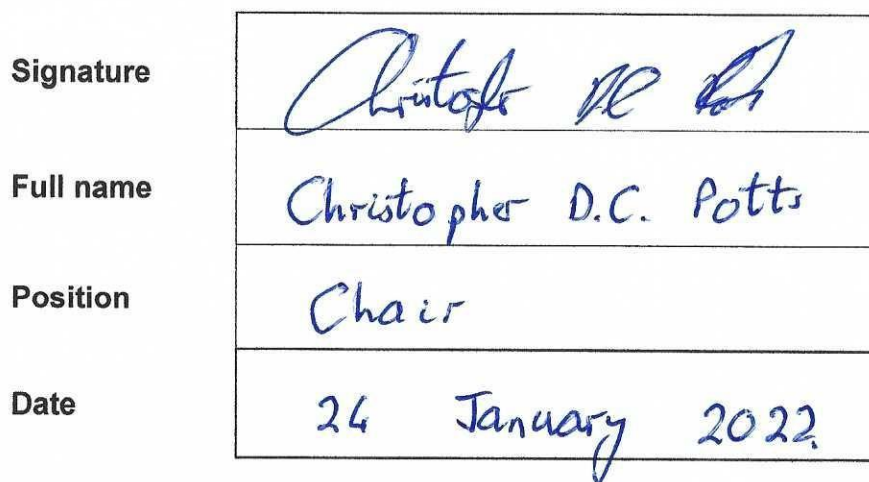 Signature Christofer DC Potts
Full name Christopher D.C. Potts
Position Chair
Date 24 January 2022